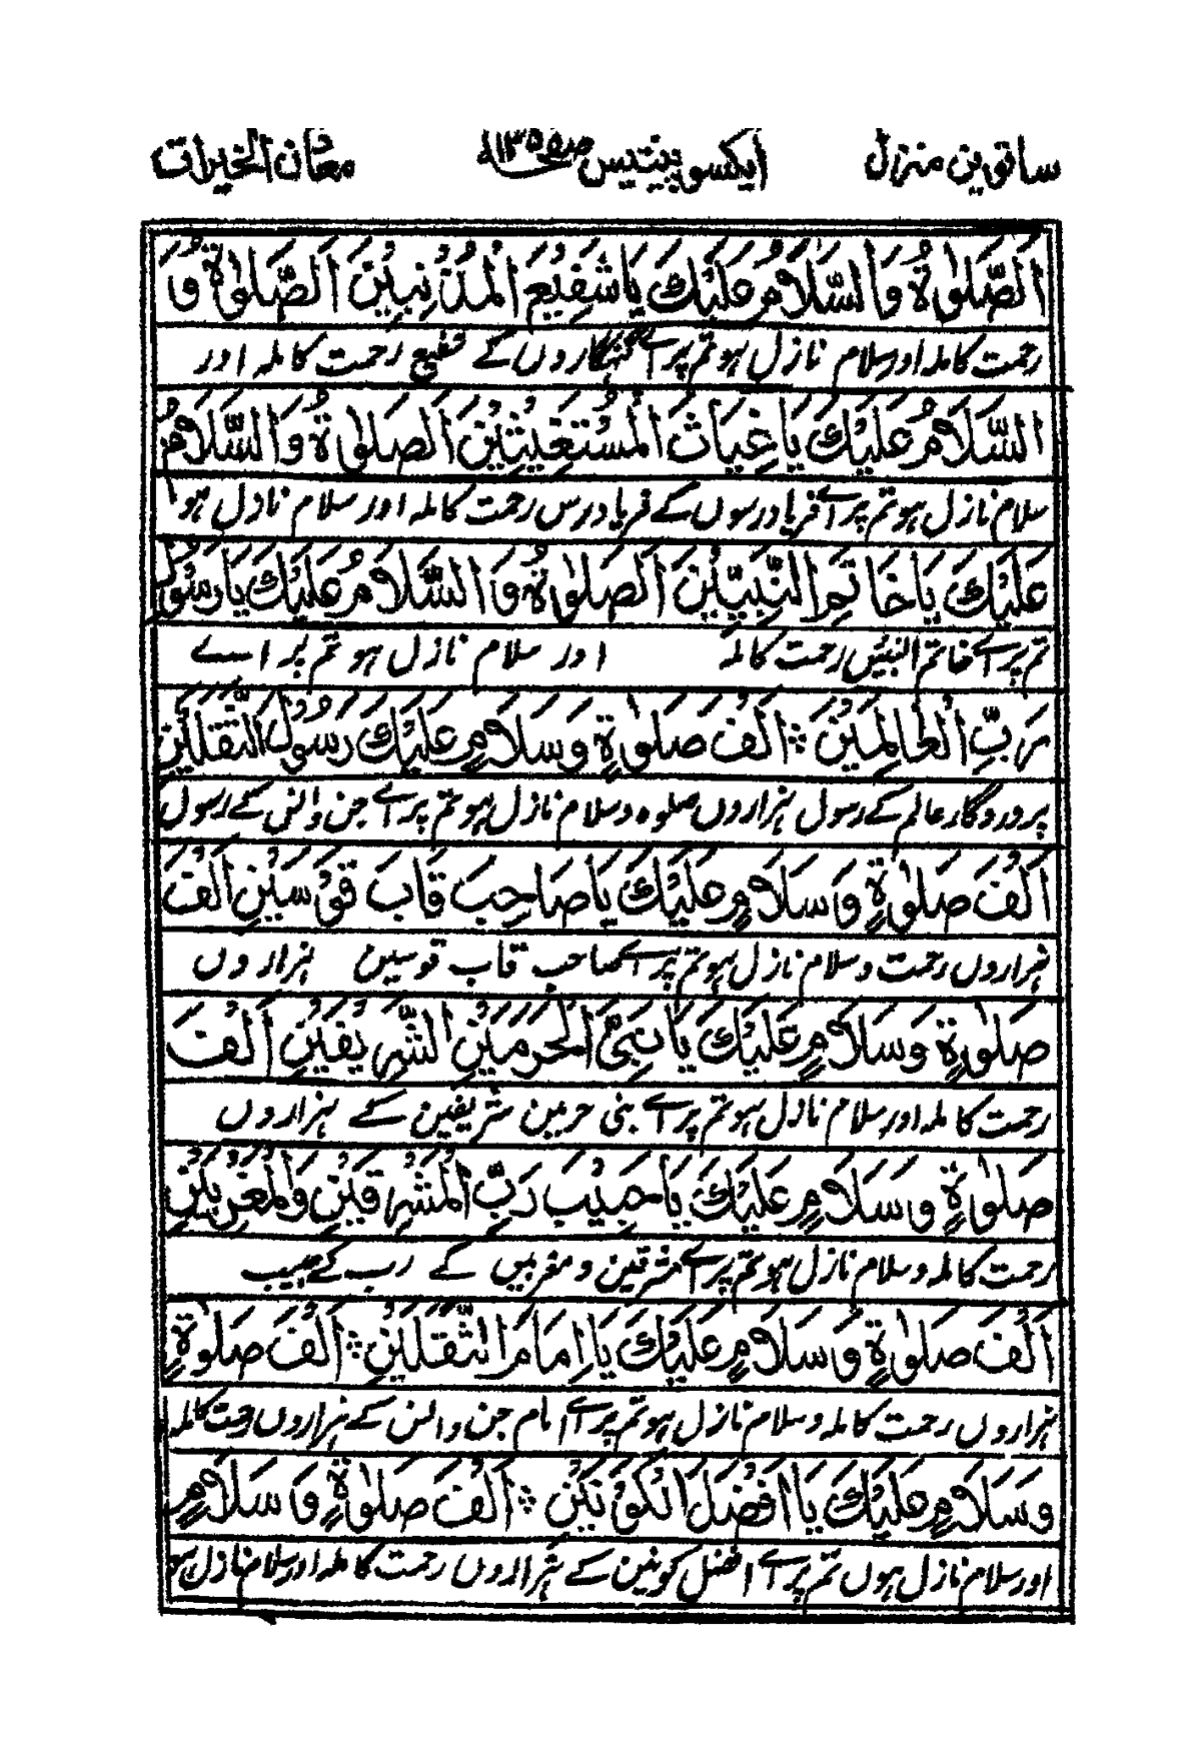 ساتویں منزل ایکسو پینتیس صفحہ ۱۳۵ معان الخیرات
اَلصَّلٰوةُ وَالسَّلَامُ عَلَيْكَ يَا شَفِيْعَ الْمُذْنِبِيْنَ اَلصَّلٰوةُ وَ
رحمت کاملہ اور سلام نازل ہو تم پر اے گنہگاروں کے شفیع رحمت کاملہ اور
السَّلَامُ عَلَيْكَ يَا غِيَاثَ الْمُسْتَغِيْثِيْنَ اَلصَّلٰوةُ وَالسَّلَامُ
سلام نازل ہو تم پر اے فریادرسوں کے فریادرس رحمت کاملہ اور سلام نازل ہو
عَلَيْكَ يَا خَاتِمَ النَّبِيِّيْنَ اَلصَّلٰوةُ وَالسَّلَامُ عَلَيْكَ يَا رَسُوْلَ
تم پر اے خاتم النبیین رحمت کاملہ اور سلام نازل ہو تم پر اے
رَبِّ الْعَالَمِيْنَ اَلْفُ صَلٰوةٍ وَسَلَامٍ عَلَيْكَ رَسُوْلَ الثَّقَلَيْنِ
پروردگار عالم کے رسول ہزاروں صلوہ و سلام نازل ہو تم پر اے جن وانس کے رسول
اَلْفُ صَلٰوةٍ وَسَلَامٍ عَلَيْكَ يَا صَاحِبَ قَابَ قَوْسَيْنِ اَلْفُ
ہزاروں رحمت و سلام نازل ہو تم پر اے صاحب قاب قوسین ہزاروں
صَلٰوةٍ وَسَلَامٍ عَلَيْكَ يَا نَبِيَّ الْحَرَمَيْنِ الشَّرِيْفَيْنِ اَلْفُ
رحمت کاملہ اور سلام نازل ہو تم پر اے نبی حرمین شریفین کے ہزاروں
صَلٰوةٍ وَسَلَامٍ عَلَيْكَ يَا حَبِيْبَ رَبِّ الْمَشْرِقَيْنِ وَالْمَغْرِبَيْنِ
رحمت کاملہ و سلام نازل ہو تم پر اے مشرقین و مغربین کے رب کے حبیب
اَلْفُ صَلٰوةٍ وَسَلَامٍ عَلَيْكَ يَا اِمَامَ الثَّقَلَيْنِ اَلْفُ صَلٰوةٍ
ہزاروں رحمت کاملہ و سلام نازل ہو تم پر اے امام جن وانس کے ہزاروں رحمت کاملہ
وَسَلَامٍ عَلَيْكَ يَا اَفْضَلَ الْكَوْنَيْنِ اَلْفُ صَلٰوةٍ وَسَلَامٍ
اور سلام نازل ہوں تم پر اے افضل کونین کے ہزاروں رحمت کاملہ اور سلام نازل ہو